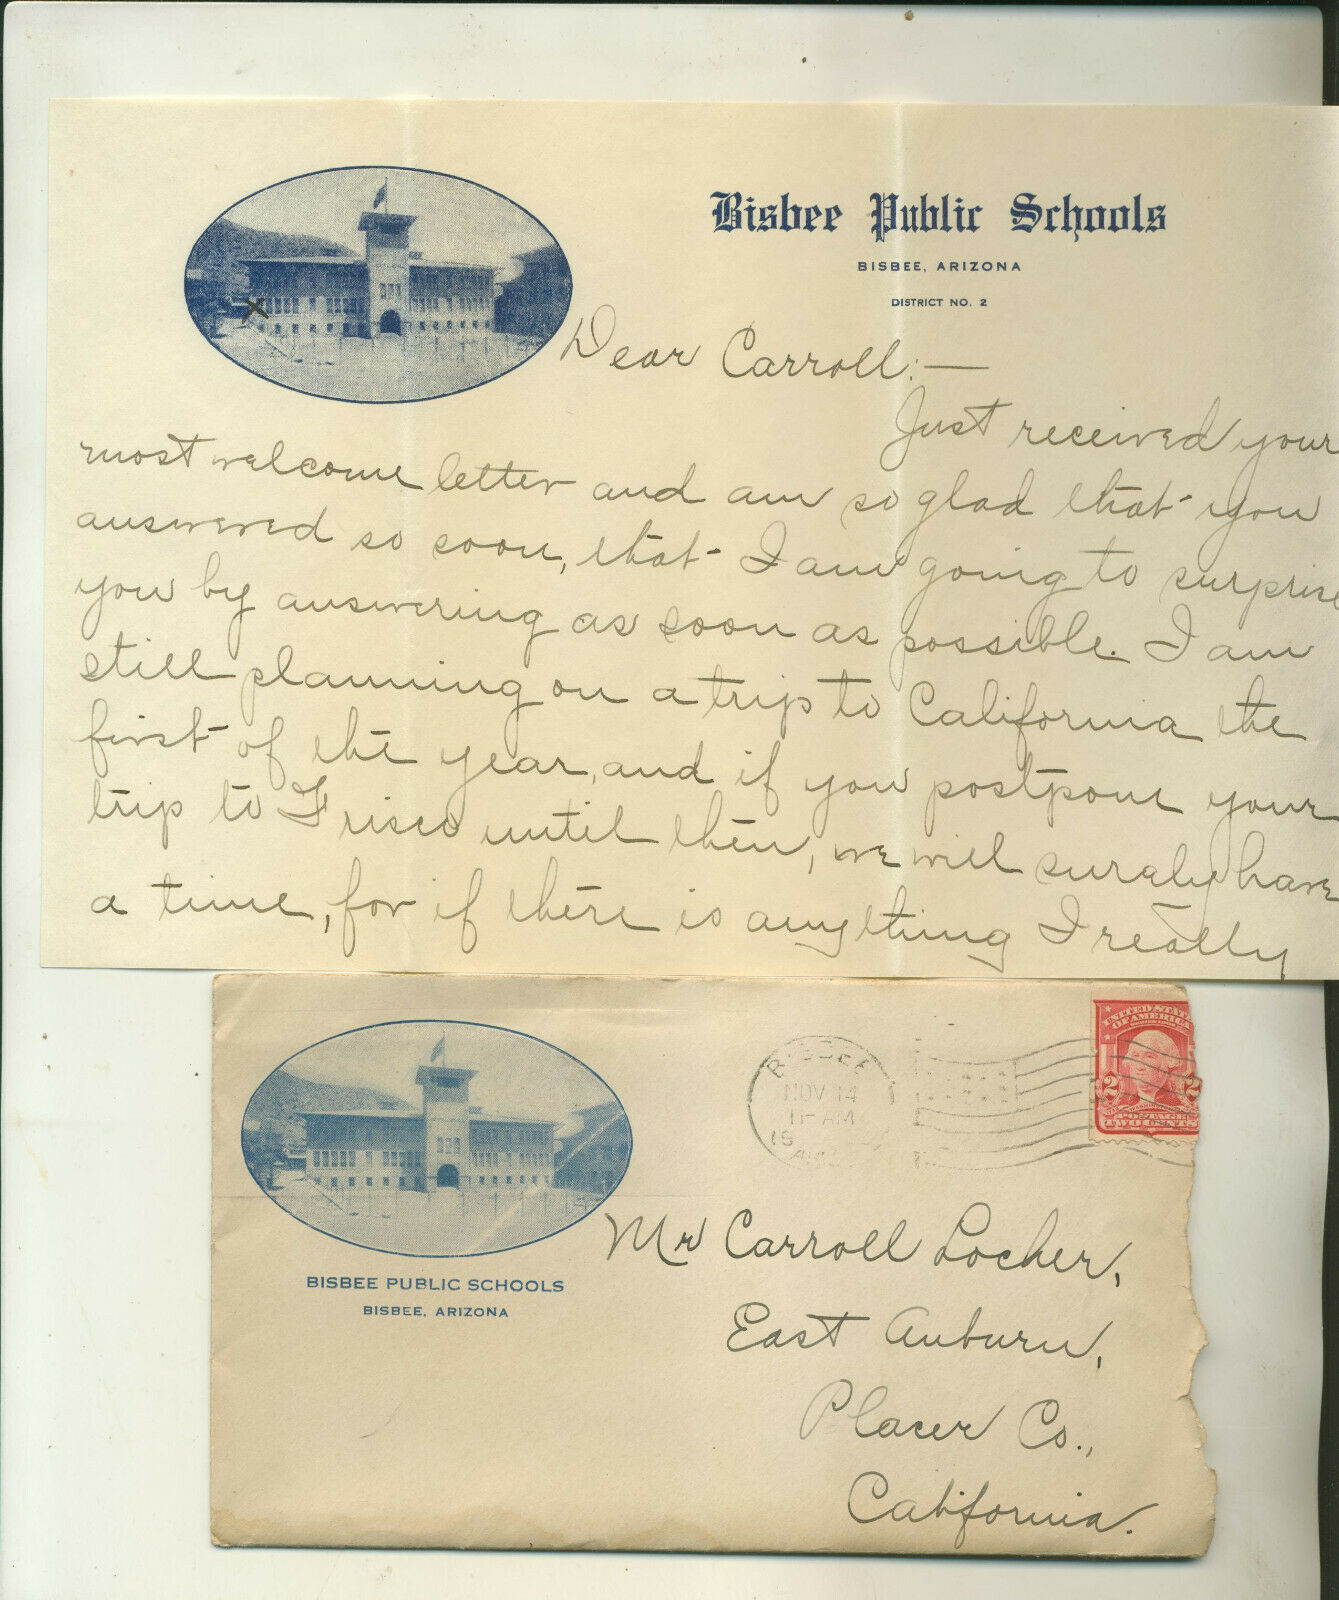 Bisbee Public Schools
BISBEE, ARIZONA
DISTRICT NO. 2
Dear Carroll:—
Just received your
most welcome letter and am so glad that you
answered so soon, that I am going to surprise
you by answering as soon as possible. I am
still planning on a trip to California the
first of the year, and if you postpone your
trip to Frisco until then, we will surely have
a time, for if there is anything I really
BISBEE
NOV 14
11-AM
19
UNITED STATES
OF AMERICA
2 2
POSTAGE
TWO CENTS
BISBEE PUBLIC SCHOOLS
BISBEE, ARIZONA
Mr Carroll Locher,
East Auburn,
Placer Co.,
California.